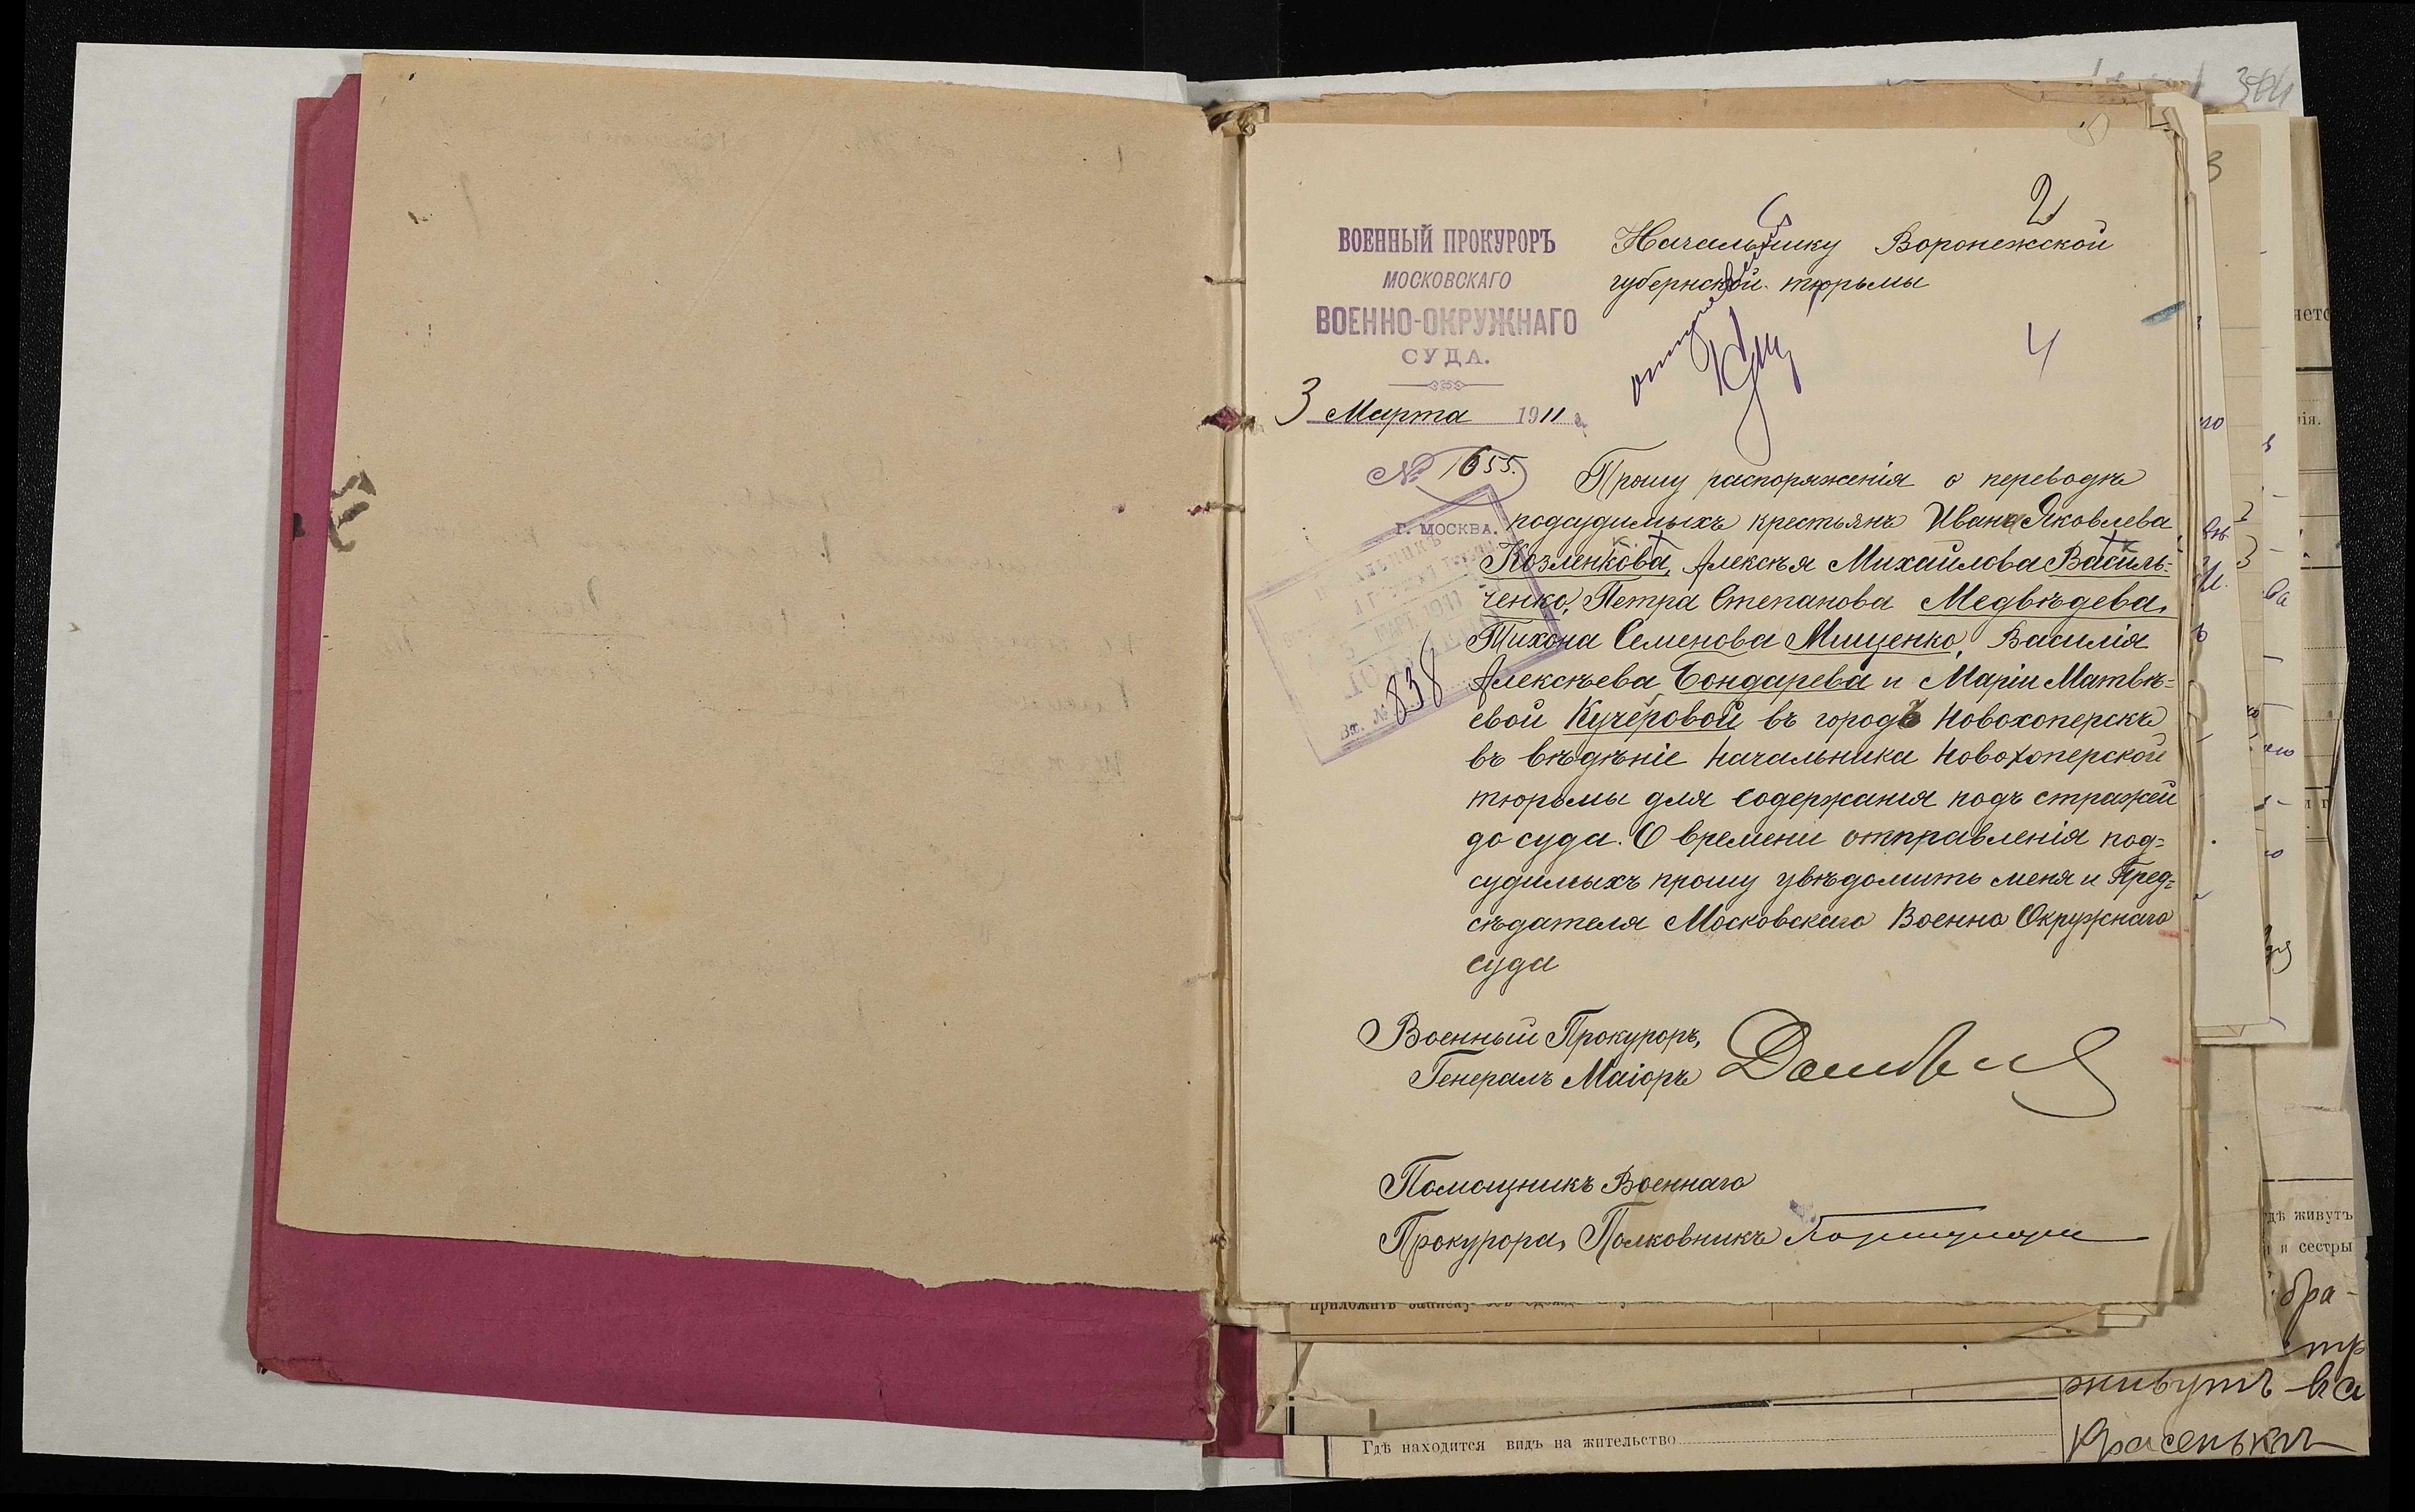 2
ВОЕННЫЙ ПРОКУРОРЪ
МОСКОВСКАГО
ВОЕННО-ОКРУЖНАГО
СУДА.
3 Марта 1911 г.
№ 1655.
Г. МОСКВА.
Начальнику Воронежской
губернской тюрьмы
4
Прошу распоряженія о переводѣ
подсудимыхъ крестьянъ Ивана Яковлева
Козленкова, Алексѣя Михайлова Василь=
ченко, Петра Степанова Медвѣдева,
Тихона Семенова Мищенко, Василія
Алексѣева Бондарева и Маріи Матвѣ=
евой Кучеровой въ городъ Новохоперскъ
въ вѣдѣніе начальника Новохоперской
тюрьмы для содержанія подъ стражей
до суда. О времени отправленія под=
судимыхъ прошу увѣдомить меня и Пред=
сѣдателя Московскаго Военно Окружнаго
суда
Вх. № 838
Военный Прокуроръ,
Генералъ Маіоръ
Помощникъ Военнаго
Прокурора, Полковникъ
дѣ живутъ
и сестры
бра-
живутъ
Гдѣ находится видъ на жительство